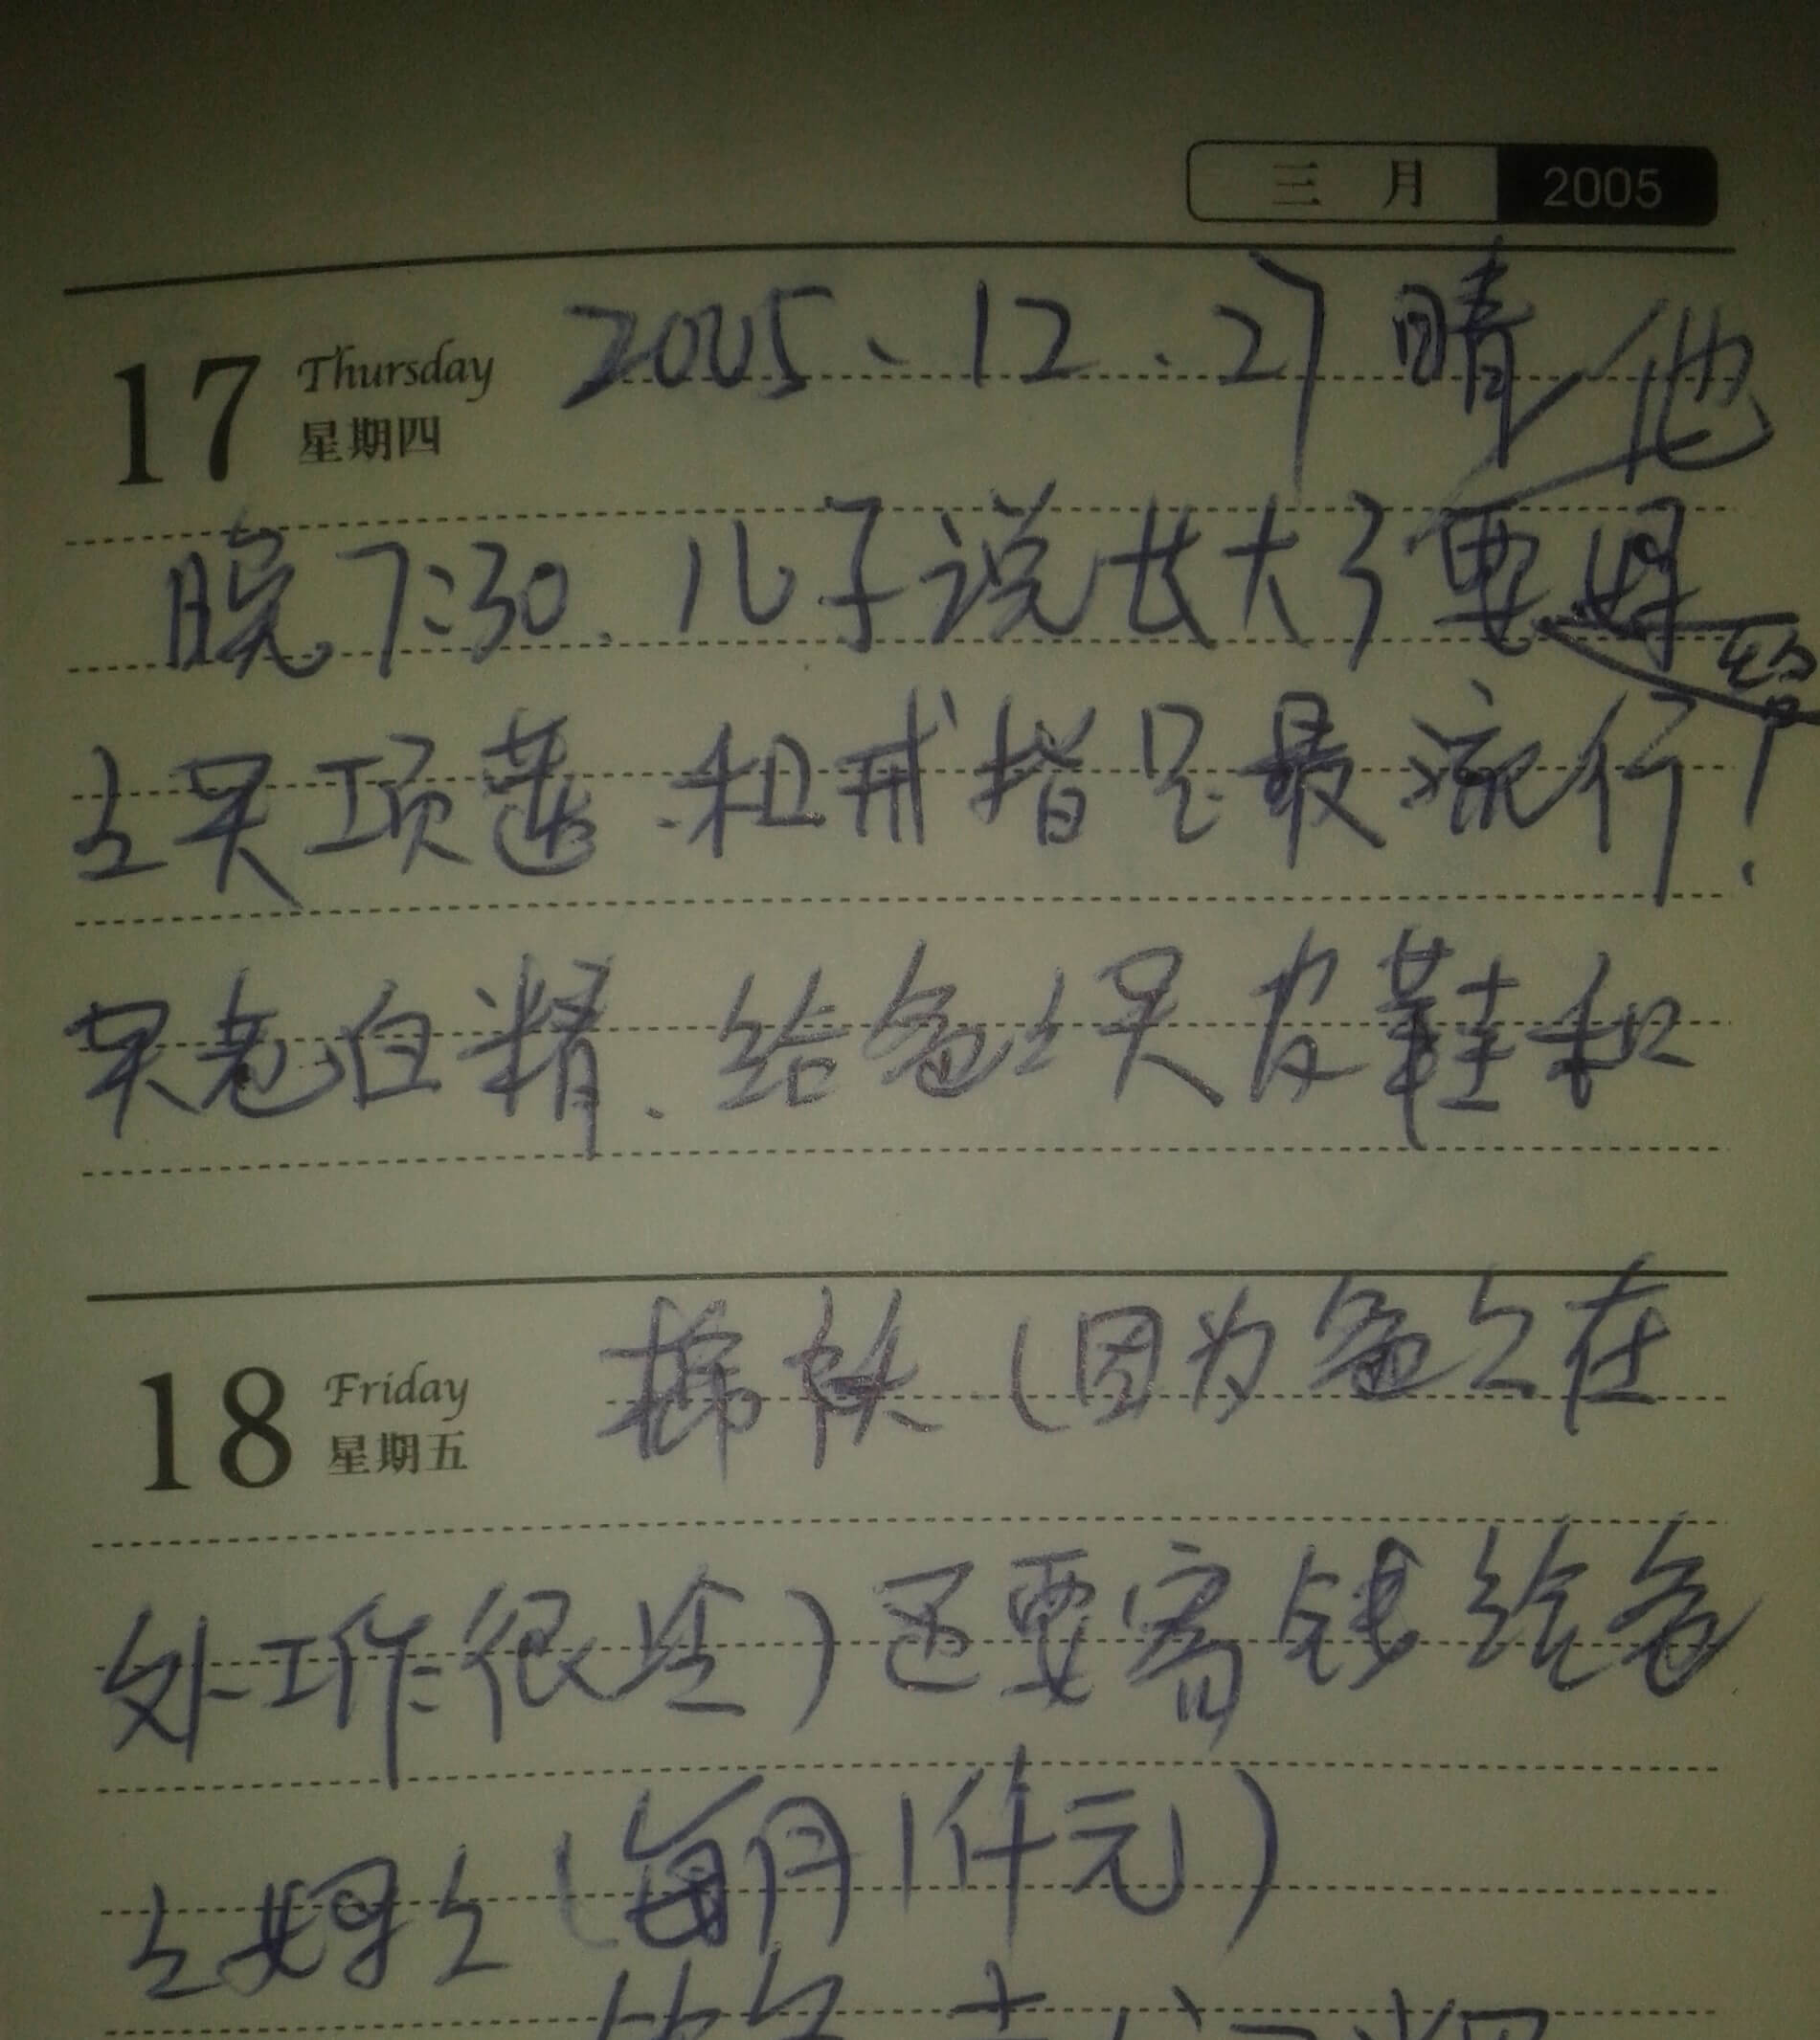 三月 2005
17 Thursday 星期四 2005、12、27 晴 他
晚7:30. 儿子说长大了要给妈
々买项莲.和戒指只最流行!
买老白精.给爸々买皮鞋和
18 Friday 星期五 棉袄(因为爸々在
外工作很冷)还要寄钱给爸
々妈々(每月1仟元)